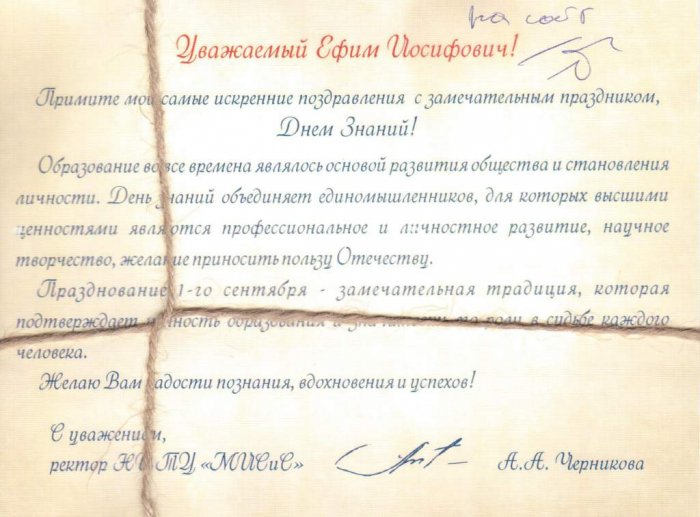 на сайт
Уважаемый Ефим Иосифович!
Примите мои самые искренние поздравления с замечательным праздником,
Днем Знаний!
Образование во все времена являлось основой развития общества и становления
личности. День знаний объединяет единомышленников, для которых высшими
ценностями являются профессиональное и личностное развитие, научное
творчество, желание приносить пользу Отечеству.
Празднование 1-го сентября - замечательная традиция, которая
подтверждает ценность образования и его роли в судьбе каждого
человека.
Желаю Вам радости познания, вдохновения и успехов!
С уважением,
ректор НИТУ «МИСиС» А.А. Черникова